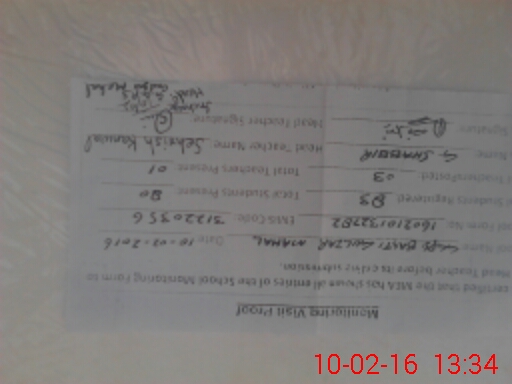 Monitoring Visit Proof
certified that the MEA has shown all entries of the School Monitoring Form to
Head Teacher before its online submission.
ool Name: GPS BASTI GULZAR Date: 10-02-2016
ool Form No: 160210132782 EMIS Code: 31220356
Students Registered: 83 Total Students Present: 80
TeachersPosted: 03 Total Teachers Present: 01
Name: G. SHABBIR Head Teacher Name: Sehrish Kanwal
Signature: Head Teacher Signature:
10-02-16 13:34